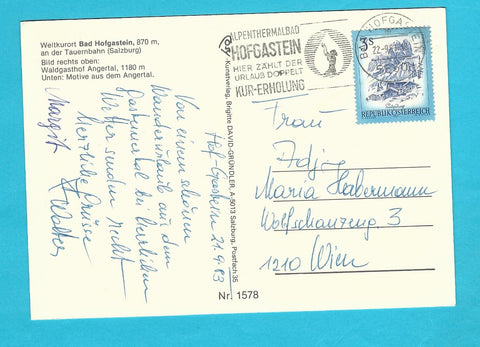 Weltkurort Bad Hofgastein, 870 m,
an der Tauernbahn (Salzburg)
Bild rechts oben:
Waldgasthof Angertal, 1180 m
Unten: Motive aus dem Angertal.
Hof-Gastein 21.9.83
Von einem schönen
Wanderurlaub aus dem
bei herrlichem
Wetter senden recht
herzliche Grüsse
Margit
Walter
Kunstverlag, Brigitte DAVID-GRÜNDLER, A-5013 Salzburg, Postfach 35
Nr. 1578
ALPENTHERMALBAD
HOFGASTEIN
HIER ZÄHLT DER
URLAUB DOPPELT
KUR-ERHOLUNG
HOFGASTEIN
22.-9.
3 S
REPUBLIK ÖSTERREICH
Frau
Maria Habermann
Wolfschanzeng. 3
1210 Wien